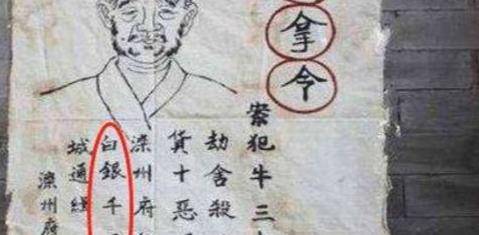 拿令
案犯牛三
劫舍殺
貨十惡
滦州府
白銀千
城通緝
滦州府